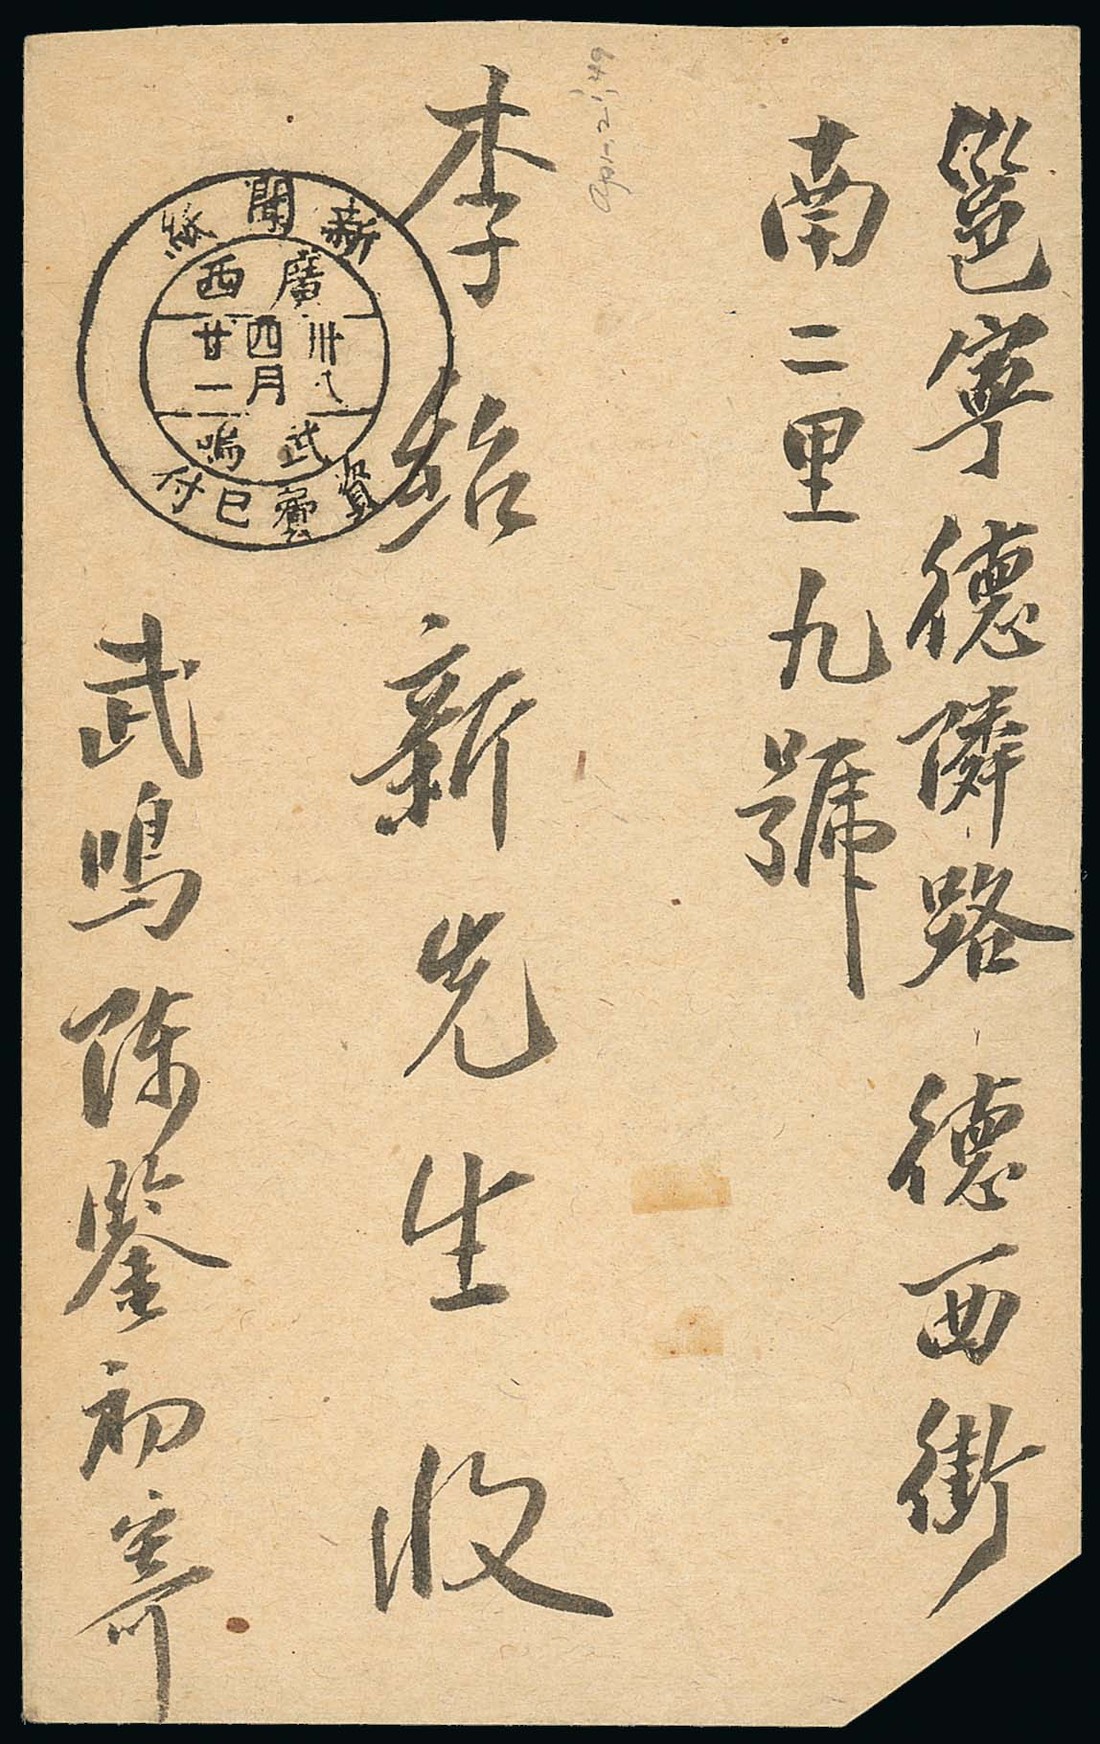 邕寧德隣路德西街
南二里九號
李紹新先生收
武鳴陳鑒初寄
新聞紙
廣西
卅八
四月
廿一
武鳴
資費已付
Apr. 21, 49